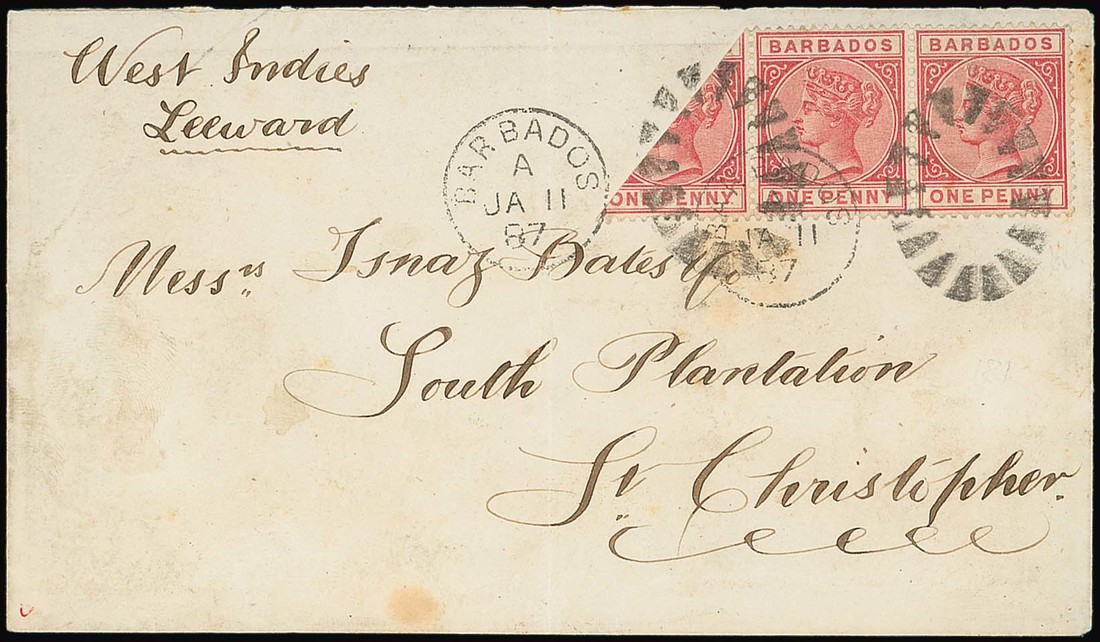 West Indies
Leeward
BARBADOS BARBADOS
ONE PENNY ONE PENNY ONE PENNY
BARBADOS
A
JA 11
87
JA 11
87
Messrs Isnaz Bates
South Plantation
St. Christopher